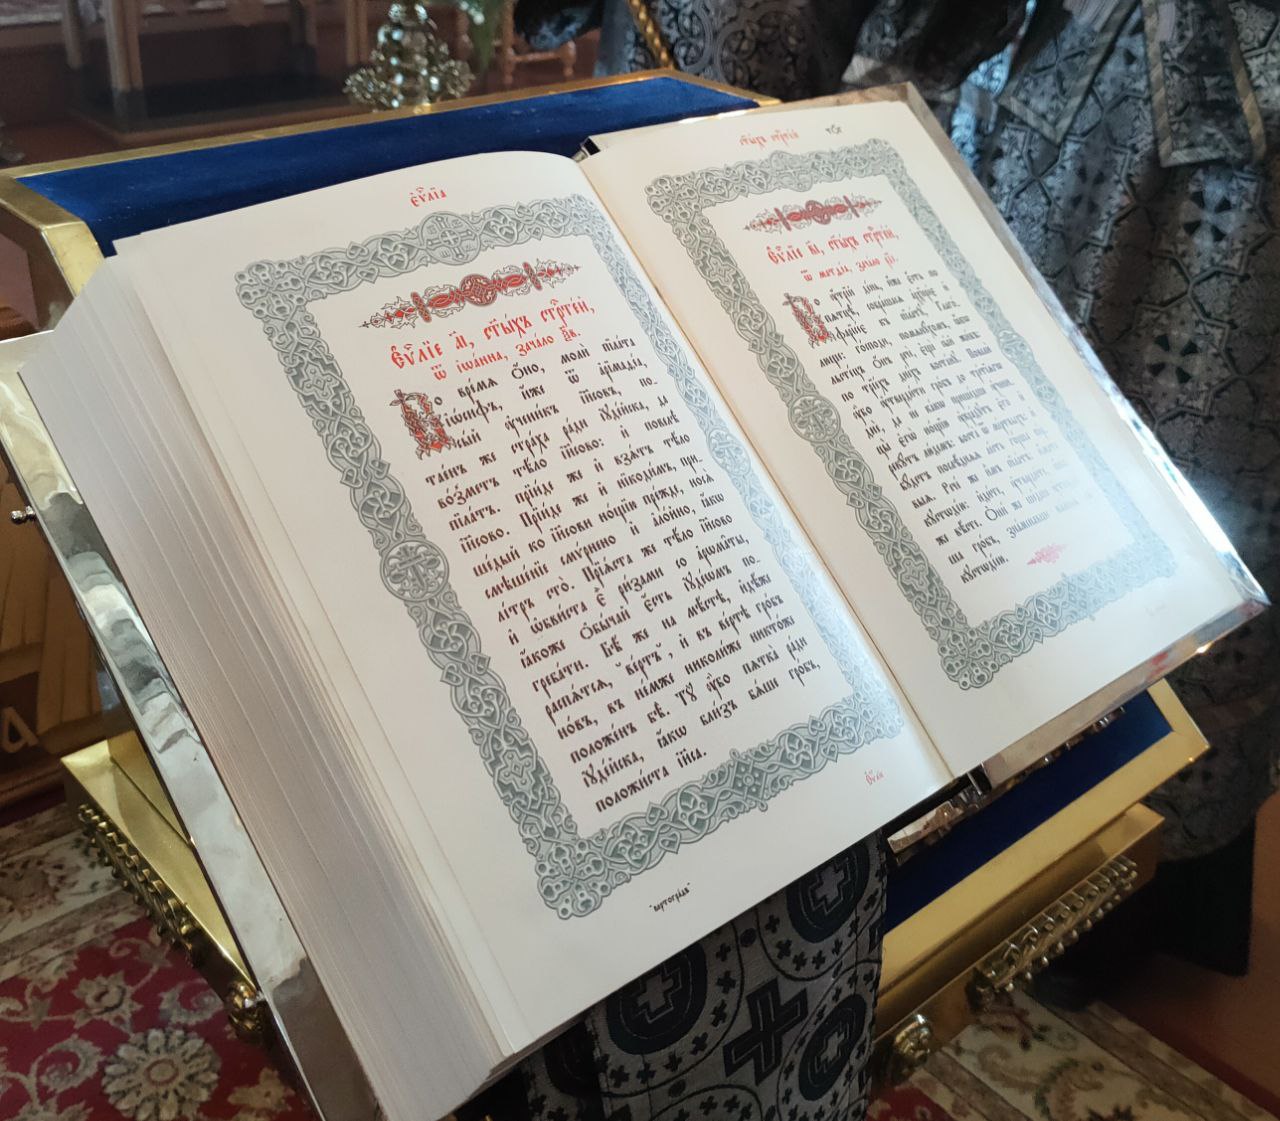 єѵⷢ҇лїа
Єѵⷢ҇лїе а҃і, ст҃ы́хъ стрⷭ҇те́й,
ѿ їѡа́нна, зача́ло ѯ҃в.
Во вре́мѧ ѻ҆́но, молѝ пїла́та
і҆ѡ́сифъ, и҆́же ѿ а҆рїмаѳе́а,
сы́й ᲂу҆чени́къ і҆и҃совъ, по-
тае́нъ же стра́ха ра́ди і҆ꙋде́йска, да
во́зметъ тѣ́ло і҆и҃сово: и҆ повелѣ̀
пїла́тъ. прїи́де же и҆ взѧ́тъ тѣ́ло
і҆и҃сово. Прїи́де же и҆ нїкоди́мъ, при-
ше́дый ко і҆и҃сови но́щїю пре́жде, носѧ̀
смѣше́нїе смѵ́рнено и҆ а҆ло́йно, ꙗ҆́кѡ
лі́тръ сто̀. Прїѧ́ста же тѣ́ло і҆и҃сово
и҆ ѡ҆бви́ста є҆̀ ри́зами со а҆рѡма́ты,
ꙗ҆́коже ѻ҆бы́чай є҆́сть і҆ꙋде́ѡмъ по-
греба́ти. Бѣ́ же на мѣ́стѣ, и҆дѣ́же
распѧ́тсѧ, ве́ртъ, и҆ въ ве́ртѣ гро́бъ
но́въ, въ не́мже николи́же никто́же
положе́нъ бѣ̀. Тꙋ̀ ᲂу҆̀бо пѧтка̀ ра́ди
і҆ꙋде́йска, ꙗ҆́кѡ бли́зъ бѧ́ше гро́бъ,
положи́ста і҆и҃са.
"вертоград"
ст҃ы́хъ стрⷭ҇те́й
ст҃ы́хъ стрⷭ҇те́й,
ѿ матѳе́а, зача́ло
Во ᲂу҆́трїй де́нь, и҆́же є҆́сть по
пѧтцѣ̀, собра́шасѧ а҆рхїере́є и҆
фарїсе́є къ пїла́тꙋ, глаго́-
люще: го́споди, помѧнꙋ́хомъ, ꙗ҆́кѡ
льсте́цъ ѻ҆́нъ речѐ, є҆щѐ сы́й жи́въ:
по трїе́хъ дне́хъ воста́нꙋ. Повелѝ
ᲂу҆̀бо ᲂу҆тверди́ти гро́бъ до тре́тїѧгѡ
днѐ, да не ка́кѡ прише́дше ᲂу҆чени-
цы̀ є҆гѡ̀ но́щїю ᲂу҆кра́дꙋтъ є҆го̀ и҆
рекꙋ́тъ лю́демъ: воста̀ ѿ ме́ртвыхъ: и҆
бꙋ́детъ послѣ́днѧѧ ле́сть го́рша пе́р-
выѧ. Рече́ же и҆̀мъ пїла́тъ: и҆́мате
кꙋстѡді́ю: и҆ди́те, ᲂу҆тверди́те, ꙗ҆́ко-
же вѣ́сте. Ѻ҆ни́ же ше́дше ᲂу҆тверди́-
ша гро́бъ, зна́менавше ка́мень съ
кꙋстѡді́ею.